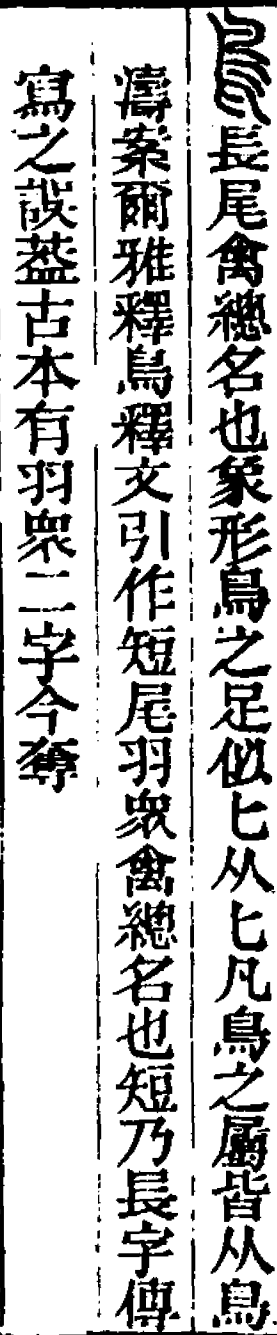 鳥長尾禽總名也象形鳥之足似匕从匕凡鳥之屬皆从鳥
濤案爾雅釋鳥釋文引作短尾羽衆禽總名也短乃長字傳
寫之誤葢古本有羽衆二字今奪